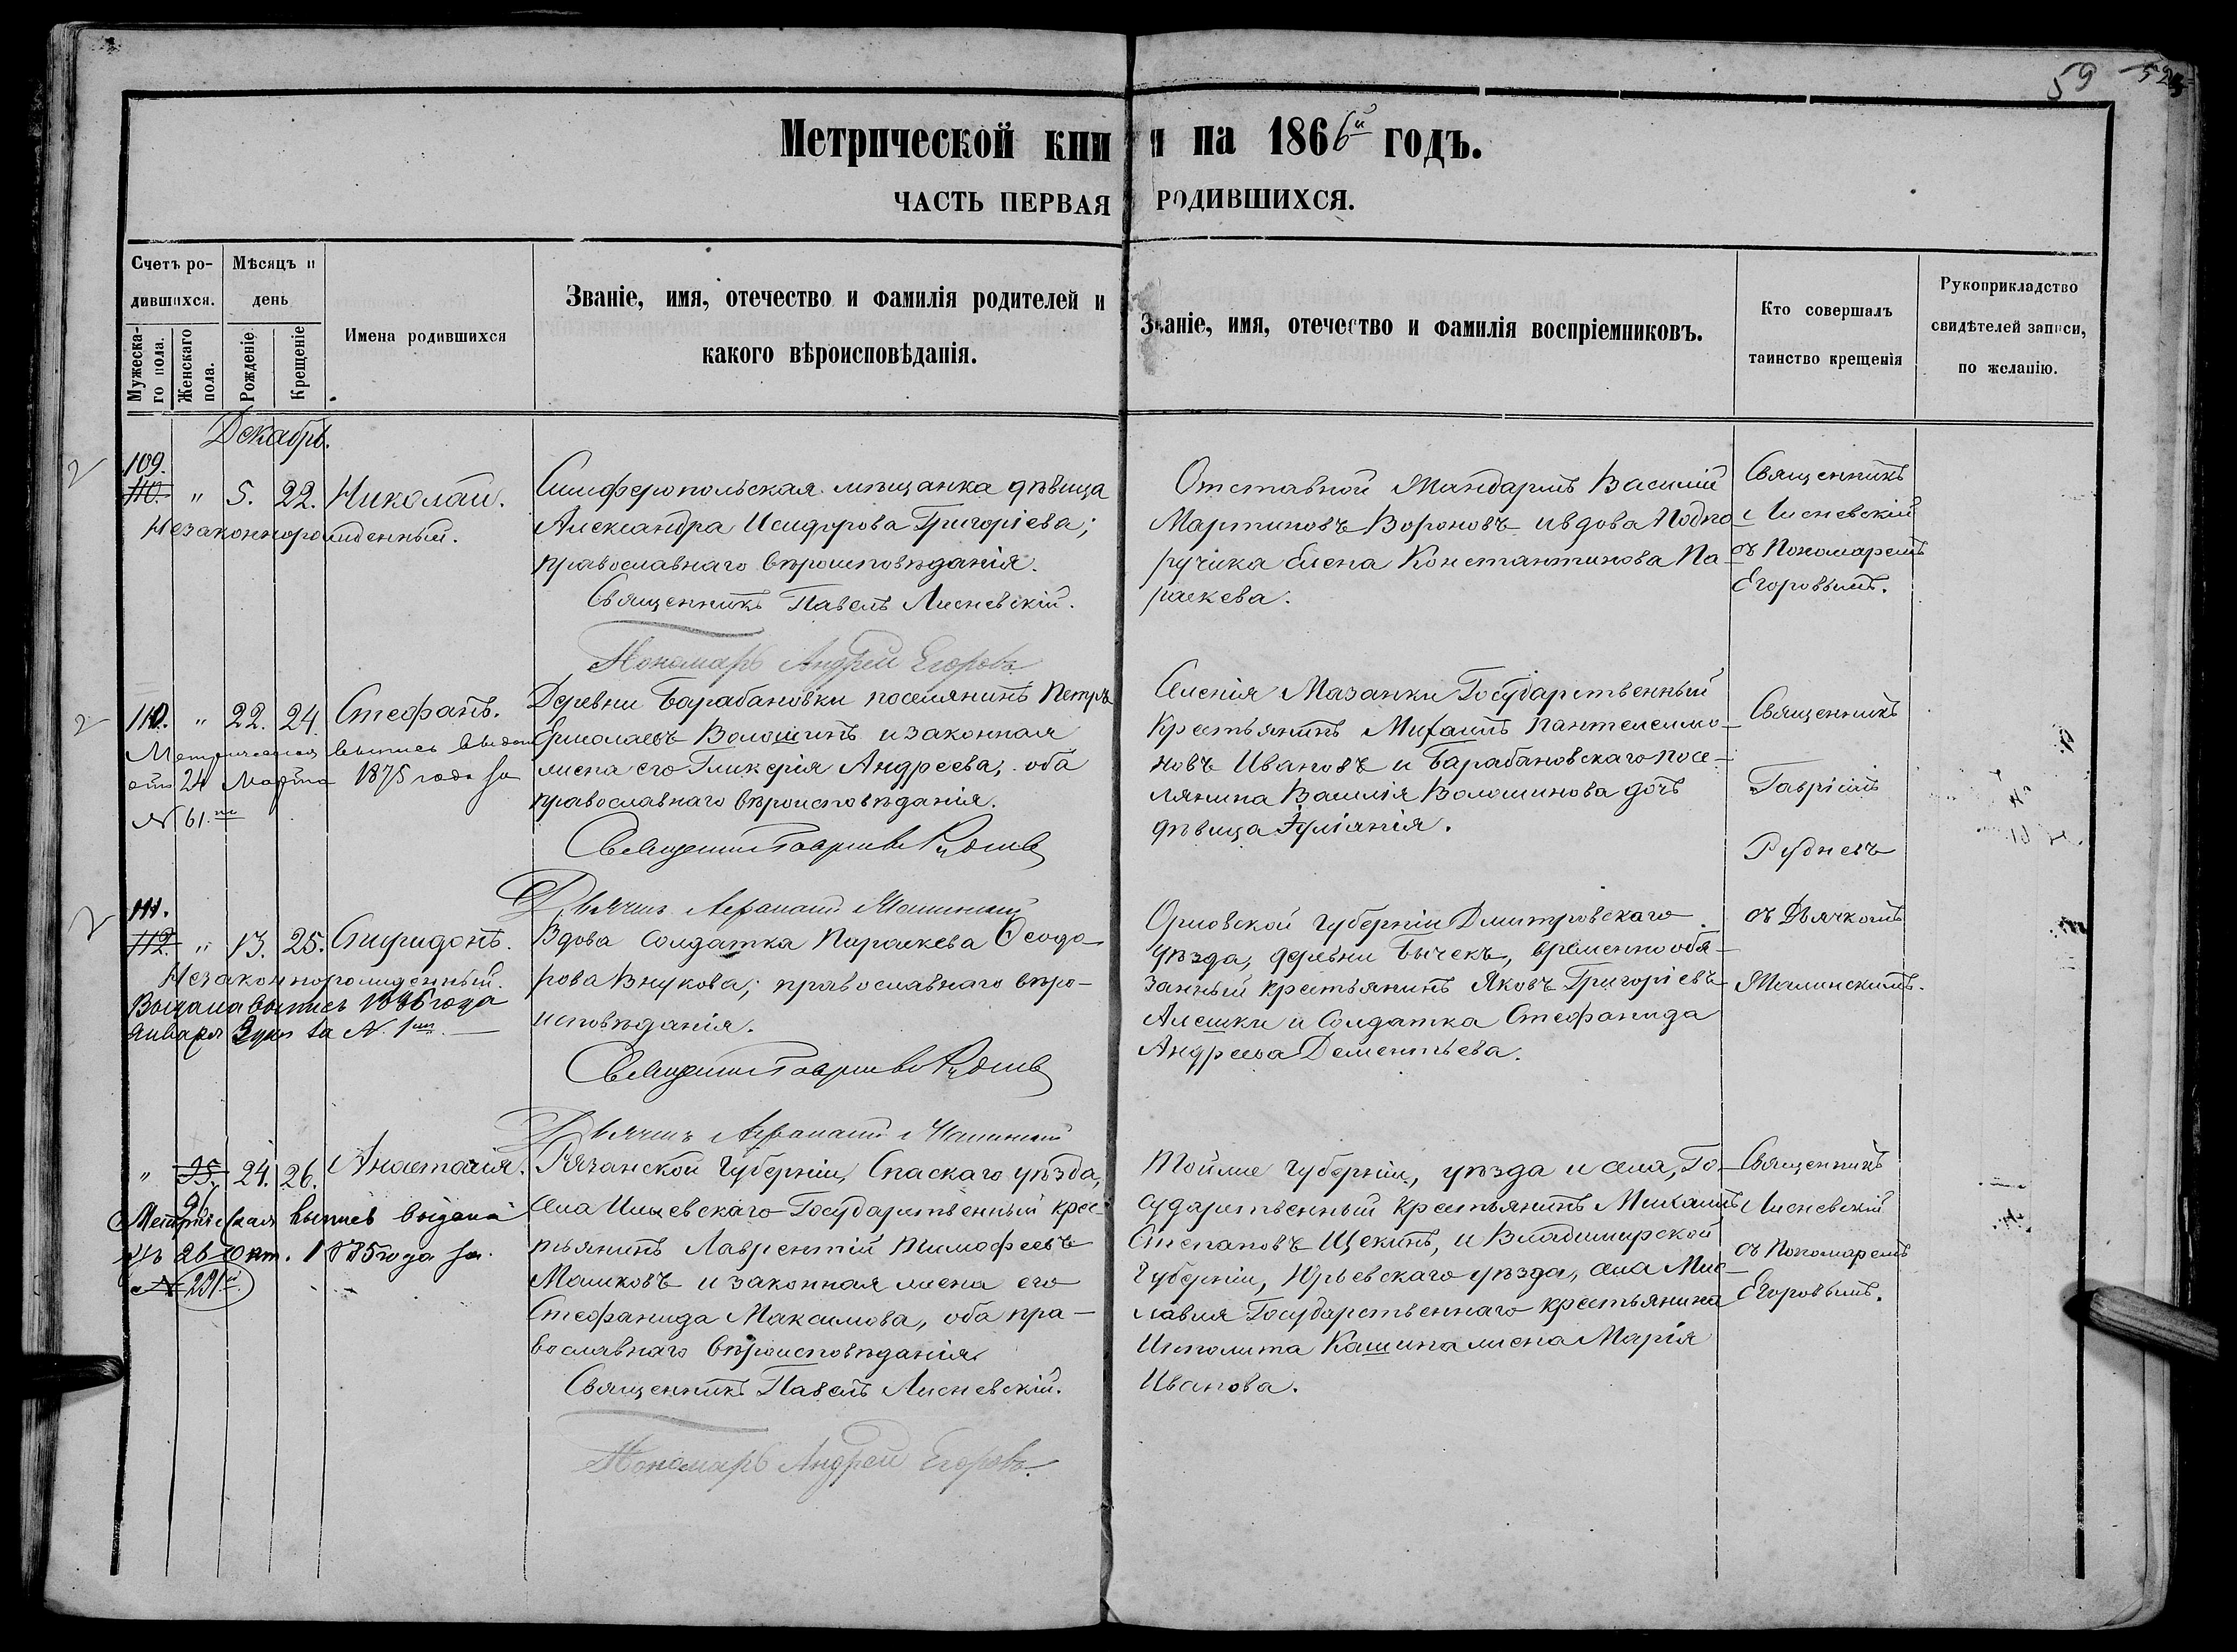 59
Метрической книги на 1866й годъ.
ЧАСТЬ ПЕРВАЯ РОДИВШИХСЯ.
Счетъ ро-
дившихся.
Мужеска-
го пола.
Женскаго
пола.
Мѣсяцъ и
день
Рожденіе.
Крещеніе
Имена родившихся
Званіе, имя, отечество и фамилія родителей и
какого вѣроисповѣданія.
Званіе, имя, отечество и фамилія воспріемниковъ.
Кто совершалъ
таинство крещенія
Рукоприкладство
свидѣтелей записи,
по желанію.
Декабрь.
109.
110. " 5. 22. Николай.
Незаконнорожденный.
Симферопольская мѣщанка дѣвица
Александра Исидорова Григоріева;
православнаго вѣроисповѣданія.
Священникъ Павелъ Лисневскій.
Пономарь Андрей Егоровъ
Отставной Мандаринъ Василій
Мартиновъ Вороновъ и вдова Подпо-
ручика Елена Константинова Па-
раскева.
Священникъ
Лисневскій
съ Пономаремъ
Егоровымъ.
110. " 22. 24. Стефанъ.
Метрическая выпись выдана
24 Марта 1875 года за
№ 61.
Деревни Барабановки поселянинъ Петръ
Ермолаевъ Волошинъ и законная
жена его Гликерія Андреева, оба
православнаго вѣроисповѣданія.
Священникъ Гавріилъ Рудневъ
Дьячекъ Афанасій Малинскій
Селенія Мазанки Государственный
крестьянинъ Михаилъ Пантелеимо-
новъ Ивановъ и Барабановскаго посе-
лянина Василія Волошинова дочь
дѣвица Іуліанія.
Священникъ
Гавріилъ
Рудневъ
съ Дьячкомъ
Малинскимъ.
111.
112. " 13. 25. Спиридонъ.
Незаконнорожденный.
Выдана выпись 1886 года
Января 3 дня за № 1мъ.
Вдова солдатка Параскева Ѳеодо-
рова Внукова; православнаго вѣро-
исповѣданія.
Священникъ Гавріилъ Рудневъ
Дьячекъ Афанасій Малинскій
Орловской губерніи Дмитровскаго
уѣзда, деревни Бычекъ, временнообя-
занный крестьянинъ Яковъ Григоріевъ
Алешки и Солдатка Стефанида
Андреева Дементьева.
" 95. 24. 26. Анастасія.
96
Метрическая выпись выдана
26 Окт. 1885 года за
№ 291й
Рязанской губерніи, Спаскаго уѣзда,
села Ижевскаго Государственный крес-
тьянинъ Лаврентій Тимофеевъ
Машковъ и законная жена его
Стефанида Максимова, оба пра-
вославнаго вѣроисповѣданія.
Священникъ Павелъ Лисневскій.
Пономарь Андрей Егоровъ
Тойже губерніи, уѣзда и села, Го-
сударственный крестьянинъ Михаилъ
Степановъ Щекинъ, и Владимирской
губерніи, Юрьевскаго уѣзда, села Мис-
лавля Государственнаго крестьянина
Ипполита Кашина жена Марія
Иванова.
Священникъ
Лисневскій
съ Пономаремъ
Егоровымъ.